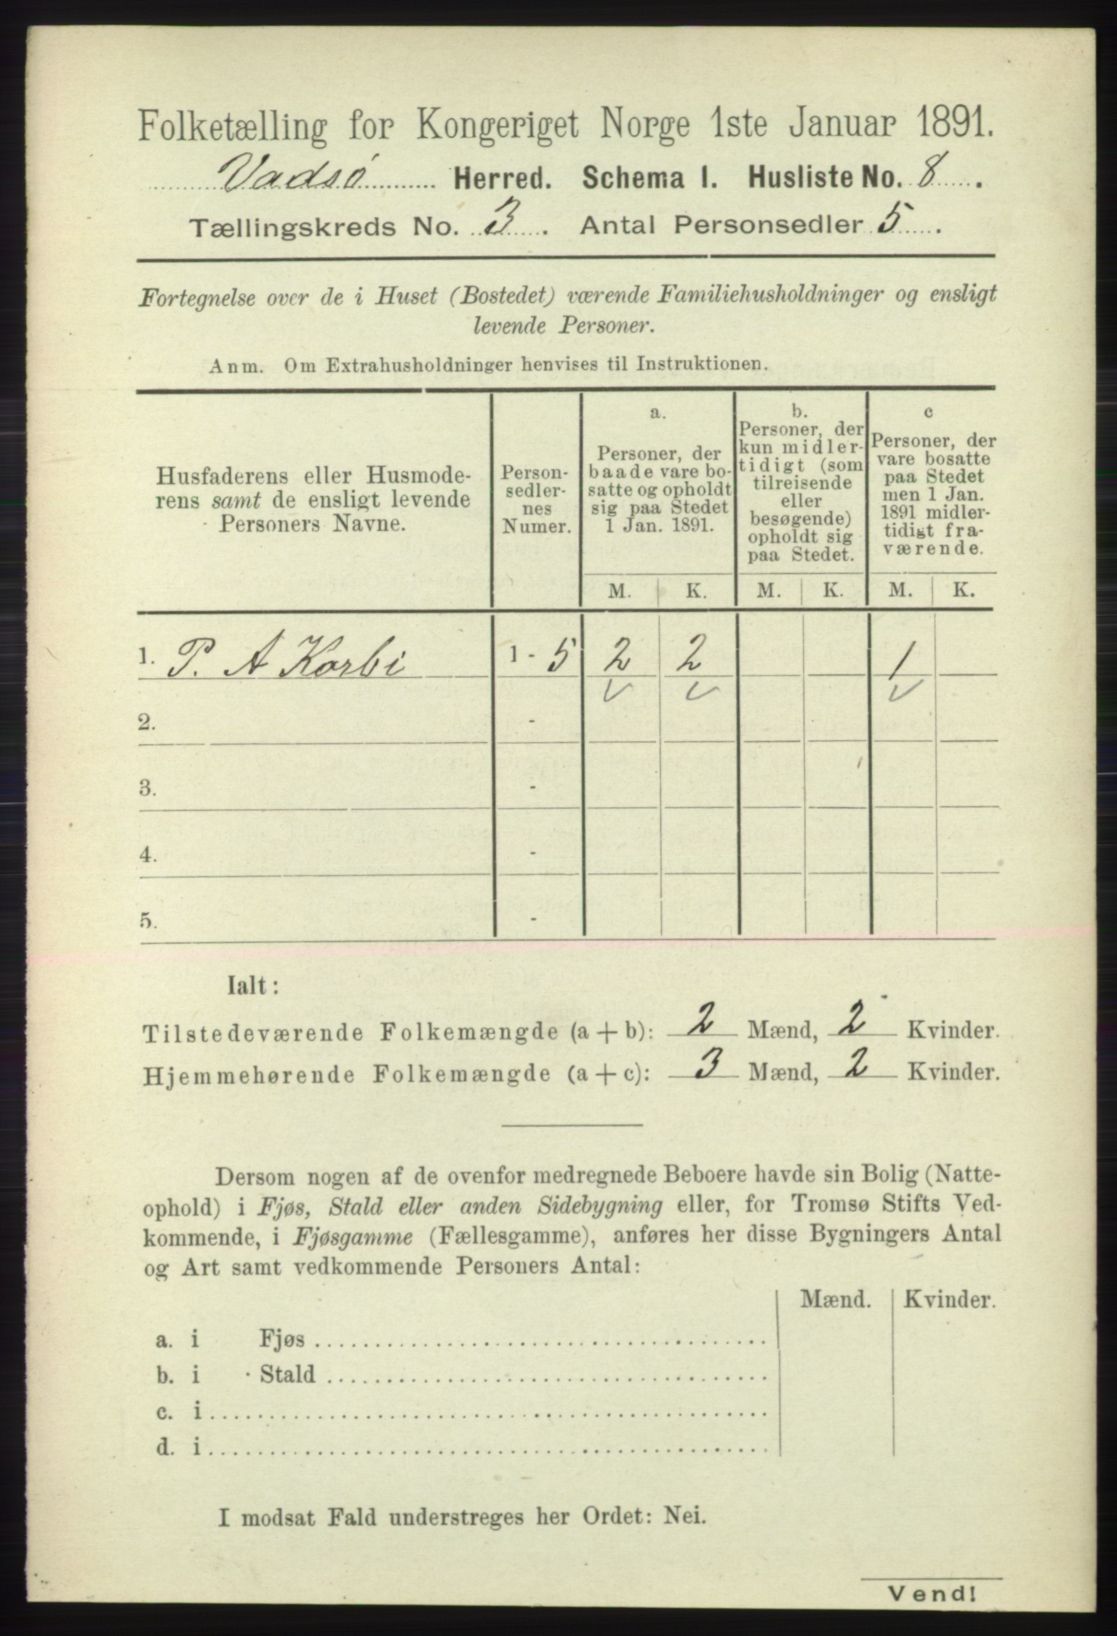 Folketælling for Kongeriget Norge 1ste Januar 1891.
Vadsø Herred. Schema I. Husliste No. 8.
Tællingskreds No. 3. Antal Personsedler 5.
Fortegnelse over de i Huset (Bostedet) værende Familiehusholdninger og ensligt
levende Personer.
Anm. Om Extrahusholdninger henvises til Instruktionen.
Husfaderens eller Husmode-
rens samt de ensligt levende
Personers Navne.
Person-
sedler-
nes
Numer.
a.
Personer, der
baade vare bo-
satte og opholdt
sig paa Stedet
1 Jan. 1891.
b.
Personer, der
kun midler-
tidigt (som
tilreisende
eller
besøgende)
opholdt sig
paa Stedet.
c
Personer, der
vare bosatte
paa Stedet
men 1 Jan.
1891 midler-
tidigt fra-
værende.
M. K. M. K. M. K.
1. P. A Korbi 1 - 5 2 2 1
2. -
3. -
4. -
5. -
Ialt:
Tilstedeværende Folkemængde (a + b): 2 Mænd, 2 Kvinder.
Hjemmehørende Folkemængde (a + c): 3 Mænd, 2 Kvinder.
Dersom nogen af de ovenfor medregnede Beboere havde sin Bolig (Natte-
ophold) i Fjøs, Stald eller anden Sidebygning eller, for Tromsø Stifts Ved-
kommende, i Fjøsgamme (Fællesgamme), anføres her disse Bygningers Antal
og Art samt vedkommende Personers Antal:
Mænd. Kvinder.
a. i Fjøs
b. i Stald
c. i
d. i
I modsat Fald understreges her Ordet: Nei.
Vend!